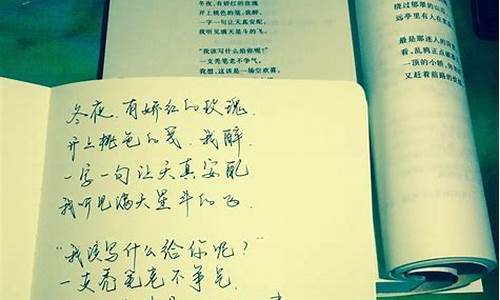 冬夜,有娇红的玫瑰
开上桃色的笺,我醉,
一字一句让天真安配,
我听见满天星斗的飞。
"我该写什么给你呢?"
一支秃笔老不争气,
我想,这该是一场空欢喜,
绕过郁翠的山
远亭里有人在
最是那迷人的
看,乱鸦正点破
一顶的小轿,
又赶着前路的
冬夜,有娇红的玫瑰,
开上桃色的笺,我醉,
一字一句让天真安配
我听见满天星斗的飞
"我该写什么给你呢?"
一支秃笔老不争气,